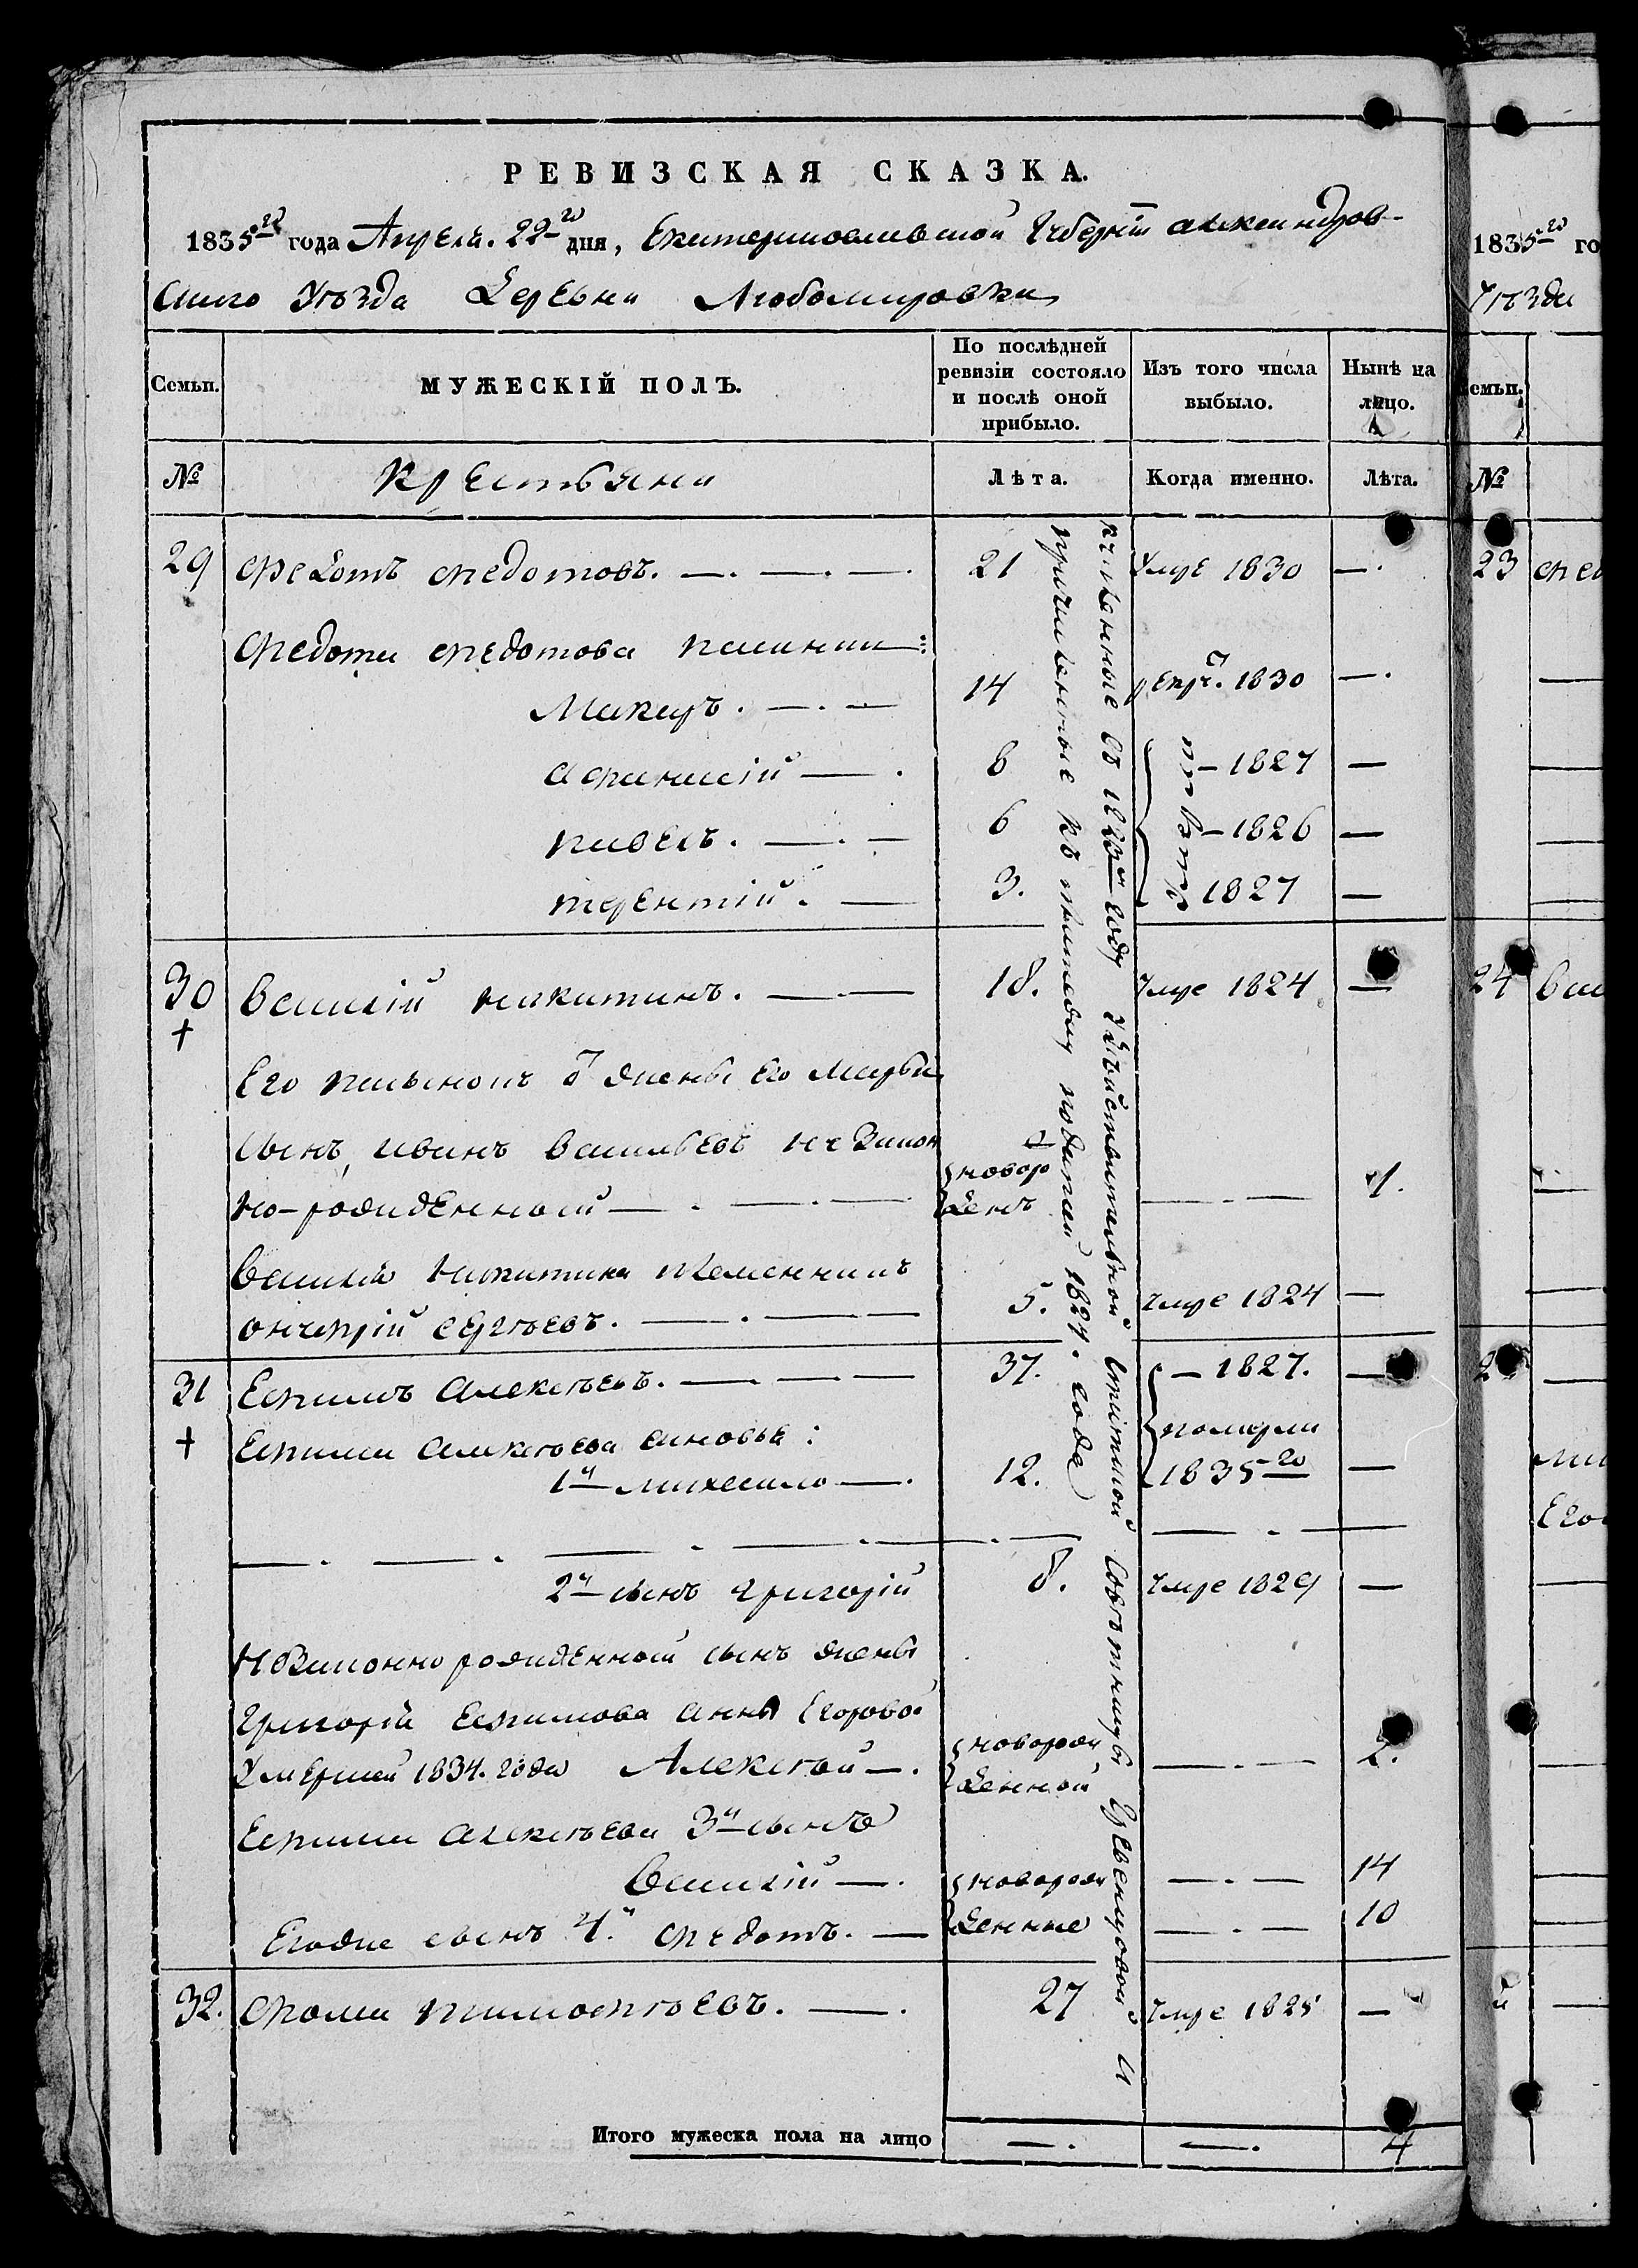 РЕВИЗСКАЯ СКАЗКА.
1835го года Апреля. 22го дня, Екатеринославской Губернiи александров-
скаго Уѣзда Деревни Любомировки
Семьи.
МУЖЕСКІЙ ПОЛЪ.
По послѣдней ревизіи состояло и послѣ оной прибыло.
Изъ того числа выбыло.
Нынѣ на лицо.
№
Крестьяни
Лѣта.
Когда именно.
Лѣта.
29 Федотъ Федотовъ. 21 Умре 1830 —.
Федота Федотова
Макаръ. — 14 1830 —.
афанасій — 8 — 1827 —
павелъ. — 6 — 1826 —
терентій. — 3. 1827 —
30 Василій никитинъ. — 18. Умре 1824 —
Его жены его Марфы
сынъ, иванъ васильевъ не закон
новорож
но-рожденный — денъ — 1.
Василія никитина племянникъ
онуфрій сергѣевъ. — 5. Умре 1824 —
31 Ефимъ алексѣевъ. — 37. — 1827. —
померли
Ефима алексѣева синовья:
1й михайло —. 12. 1835го —
2й сынъ григорій 8. Умре 1829 —
Незаконно рожденный сынъ жены
Григорія Ефимова анны Егоровой
Умершей 1834. года Алексѣй —. новорож
денной — 2.
Ефима алексѣева 3й сынъ
Василій —. новорож — 14
Егоже сынъ 4й федотъ. — денные — 10
32. фома тимофѣевъ. —. 27 Умре 1825 —
Итого мужеска пола на лицо —. —. 4
численные въ году дѣйствительной статской совѣтницы и
причисленные къ 1824. года
1835го го
Уѣзда
емьи.
№
23 фед
24 Вас
Мих
Его